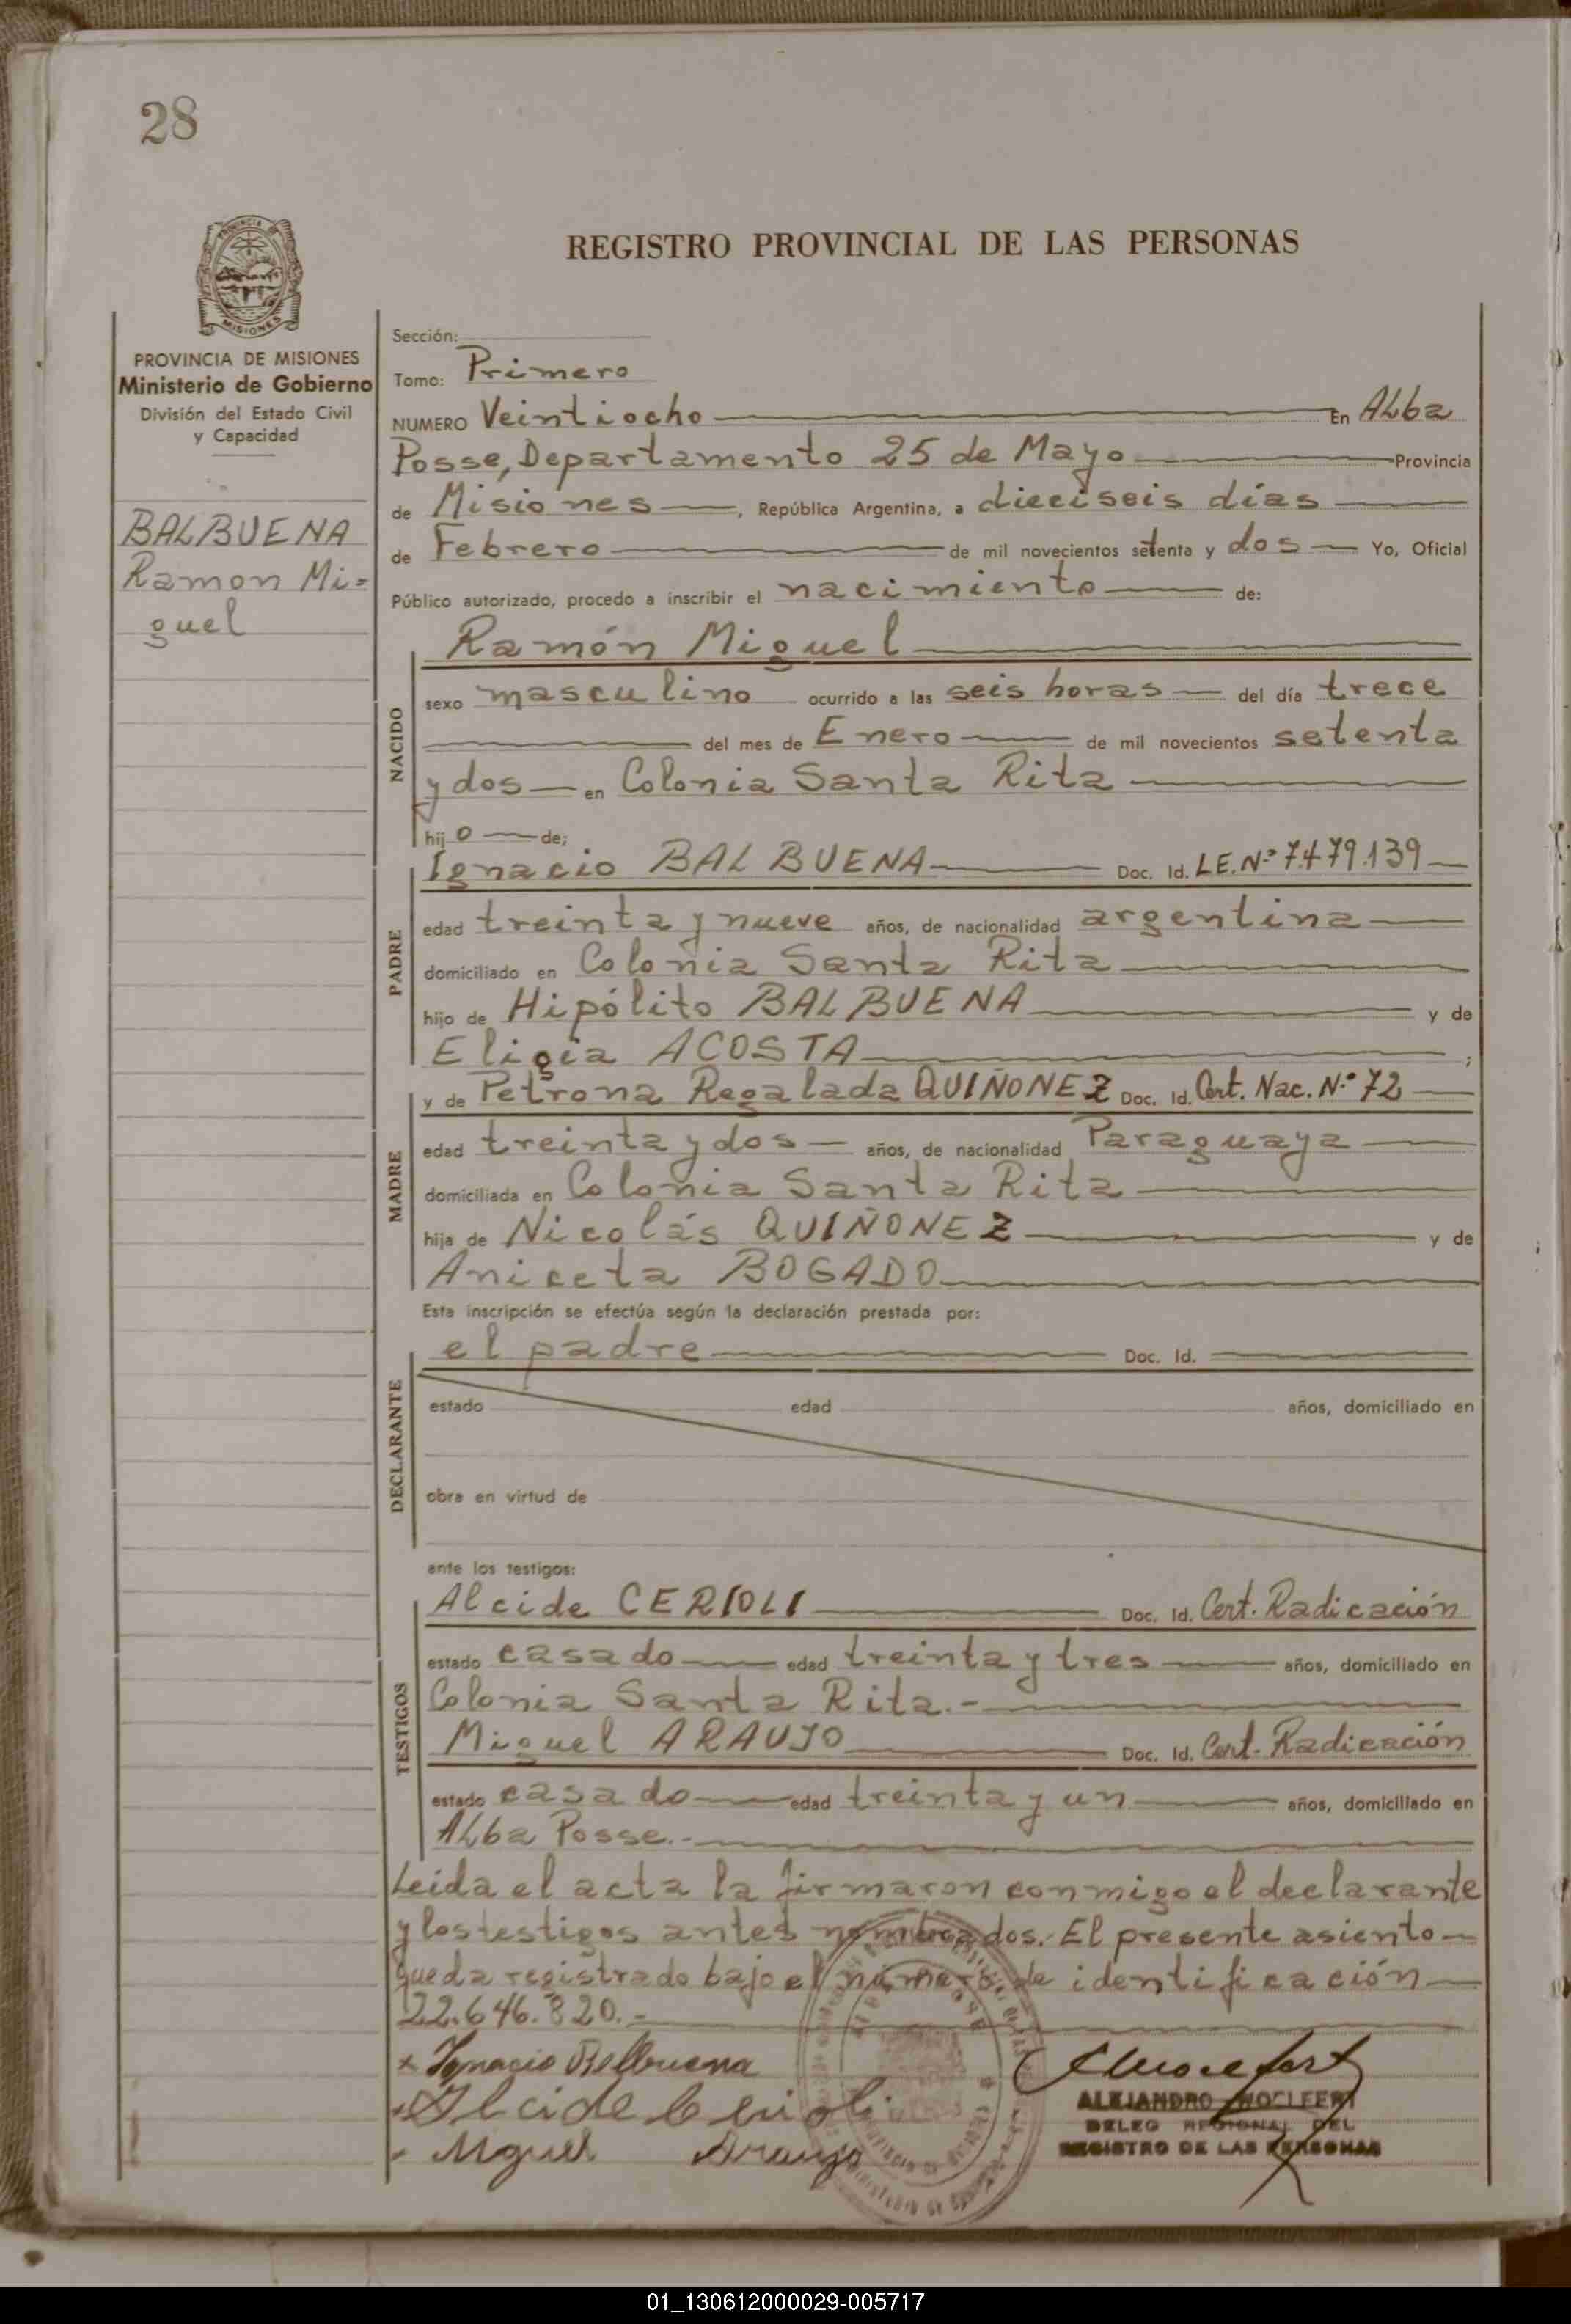 28
REGISTRO PROVINCIAL DE LAS PERSONAS
PROVINCIA DE MISIONES
Ministerio de Gobierno
División del Estado Civil
y Capacidad
BALBUENA
Ramon Mi=
guel
Sección:
Tomo: Primero
NUMERO Veintiocho En Alba
Posse, Departamento 25 de Mayo Provincia
de Misiones, República Argentina, a dieciseis días
de Febrero de mil novecientos setenta y dos Yo, Oficial
Público autorizado, procedo a inscribir el nacimiento de:
NACIDO
Ramón Miguel
sexo masculino ocurrido a las seis horas del día trece
del mes de Enero de mil novecientos setenta
y dos en Colonia Santa Rita
hijo de;
PADRE
Ignacio BALBUENA Doc. Id. L.E. Nº 7.479.139
edad treinta y nueve años, de nacionalidad argentina
domiciliado en Colonia Santa Rita
hijo de Hipólito BALBUENA y de
Eligia ACOSTA ;
MADRE
y de Petrona Regalada QUIÑONEZ Doc. Id. Cert. Nac. Nº 72
edad treinta y dos años, de nacionalidad Paraguaya
domiciliada en Colonia Santa Rita
hija de Nicolás QUIÑONEZ y de
Aniceta BOGADO
Esta inscripción se efectúa según la declaración prestada por:
DECLARANTE
el padre Doc. Id.
estado edad años, domiciliado en
obra en virtud de
ante los testigos:
TESTIGOS
Alcide CERIOLI Doc. Id. Cert. Radicación
estado casado edad treinta y tres años, domiciliado en
Colonia Santa Rita.-
Miguel ARAUJO Doc. Id. Cert. Radicación
estado casado edad treinta y un años, domiciliado en
Alba Posse.-
Leida el acta la firmaron conmigo el declarante
y los testigos antes nombrados. El presente asiento
queda registrado bajo el número de identificación
22.646.820.-
x Ignacio Balbuena
Alcide Cerioli
Miguel Araujo
ALEJANDRO
DELEG REGIONAL DEL
REGISTRO DE LAS PERSONAS
01_130612000029-005717